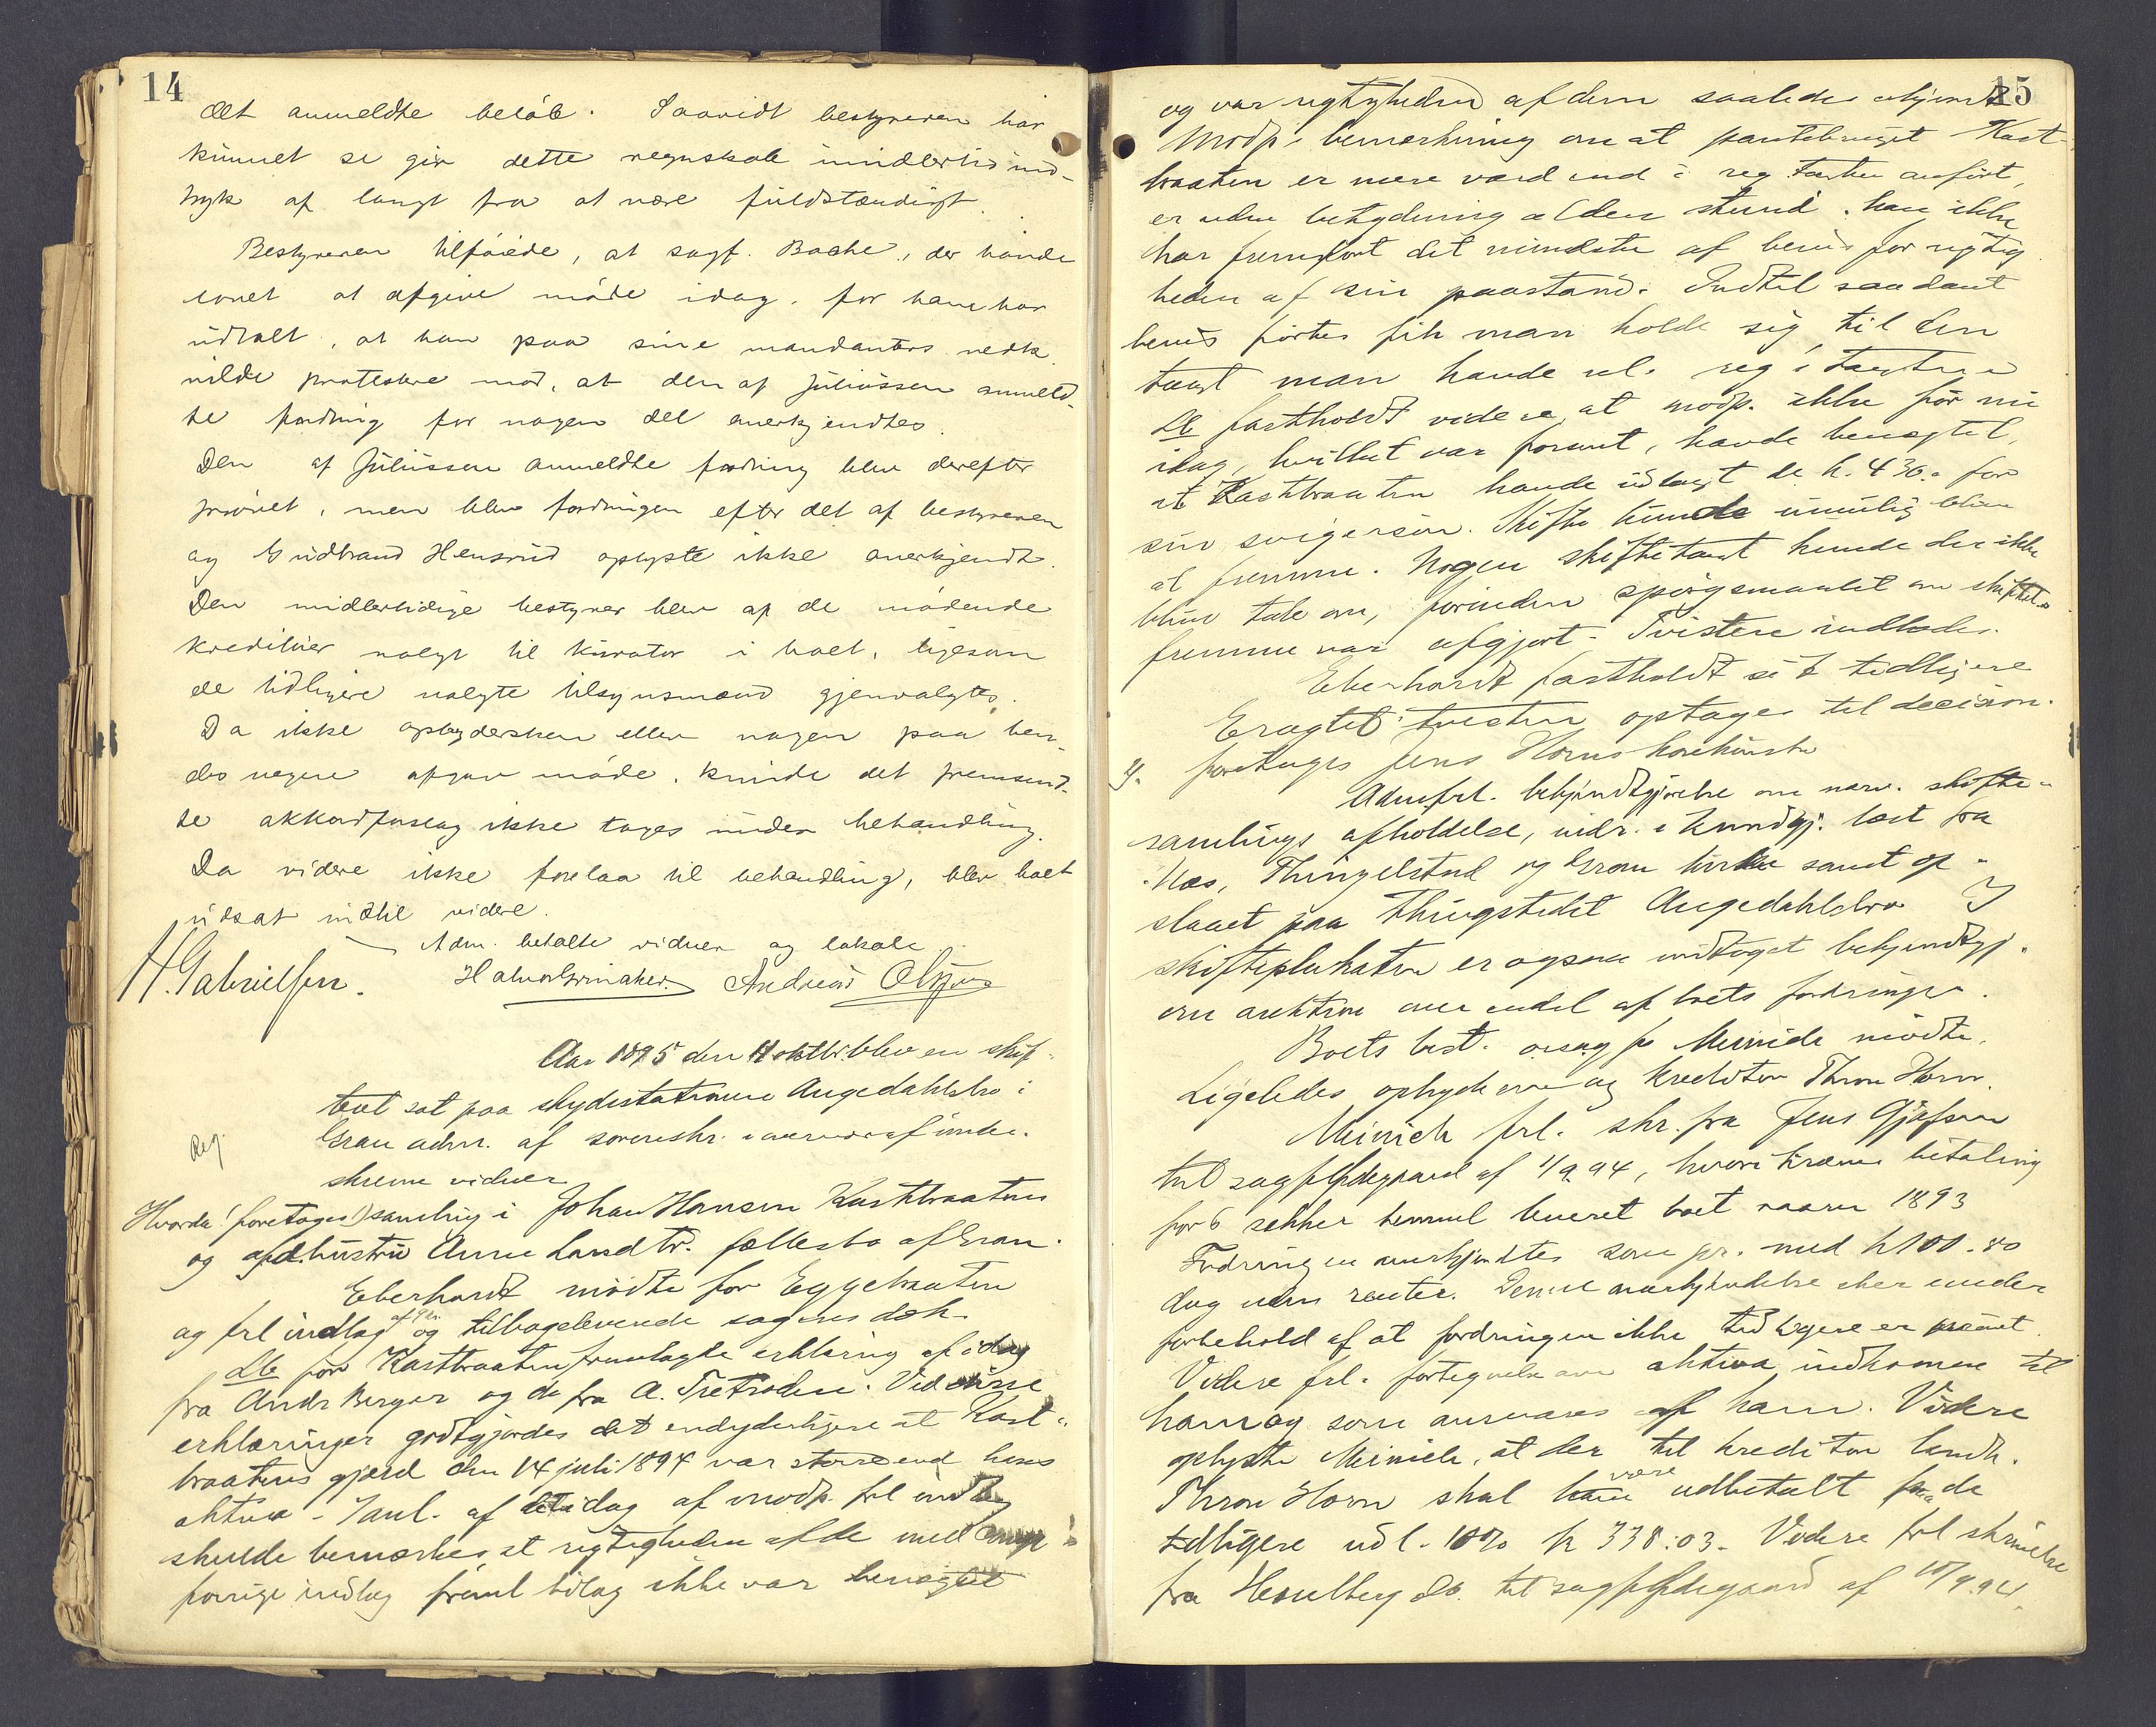 14
det anmeldte beløb. Saavidt bestyreren har
kunnet se gir dette regnskab imidlertid ind-
tryk af langt fra at være fuldstændigt.
Bestyreren tilføiede, at sagf. Bache, der havde
lovet at afgive møde idag, for ham har
udtalt, at han paa sine mandanters vedk.
vilde protestere mod, at den af Juliussen anmeld-
te fordring for nogen del anerkjendtes.
Den af Juliussen anmeldte fordring blev derefter
prøvet, men blev fordringen efter det af bestyreren
og Gudbrand Hensrud oplyste ikke anerkjendt.
Den midlertidige bestyrer blev af de mødende
kreditorer valgt til kurator i boet, ligesom
de tidligere valgte tilsynsmænd gjenvalgtes.
Da ikke opbydersken eller nogen paa hen-
des vegne afgav møde, kunde det fremsend-
te akkordforslag ikke tages under behandling.
Da videre ikke forelaa til behandling, blev boet
udsat indtil videre.
Adm. betalte vidner og lokale.
H. Gabrielsen. Halvor Grinaker. Andreas
Aar 1895 den 11 oktbr. blev en skif-
teret sat paa skydsstationen Augedahlsbro i
Gran adm. af sorenskr. i overvær af under-
skrevne vidner
Hvorda: foretoges 1) samling i Johan Hansen Kastbraatens
og hustru Anne Larsdtr. fællesbo af Gran.
Eberhardt mødte for Eggebraaten
og frl indlæg og tilbageleverede sagens dok.
for Kastbraaten fremlagde erklæring af idag
fra Andr Berger og do fra A. Tretroden. Ved disse
erklæringer godtgjordes det endyderligere at Kast-
braatens gjæld den 14 juli 1894 var større end hans
aktiva. af idag af modp. frl indlæg
skulde bemærkes at rigtigheden af de med
forrige indlæg freml bilag ikke var benægtet
15
og var rigtigheden af dem saaledes erkjendt
Modp's bemærkning om at pantebruget Kast-
braaten er mere værd end i reg. taxten anført,
er uden betydning al den stund han ikke
har fremført det mindste af bevis for rigtig
heden af sin paastand. Indtil saadant
bevis førtes fik man holde sig til den
taxt man havde reg.
fastholdt videre at modp. ikke før nu
idag, hvilket var forsent, havde benægtet,
at Kastbraaten havde udlagt de k. 430.- for
sin svigersøn. Skifte kunde umulig blive
at fremme. Nogen skiftetaxt kunde der ikke
blive tale om, forinden spørgsmaalet om skiftets
fremme var afgjort. Tvisten indlodes.
Eberhardt fastholdt sit tidligere
Eragtet: tvisten optages til decision.
2). foretoges Jens Horns konkursbo
Adm frl. bekjendtgjørelse om nærv. skifte-
samlings afholdelse, i kundgj. læst fra
Næs, Thingelstad og Gran kirker samt op-
slaaet paa Thingstedet Augedahlsbro. I
skifteplakaten er ogsaa indtaget bekjendtgj.
om auktion over endel af boets fordringer.
Boets best. Meinich mødte.
Ligeledes opbyderen og kreditor Thron Horn.
Meinich frl. skr. fra Jens Gjefsen
til sagf Ødegaard af 1/9.94, hvori kræves betaling
for 6 sækker leveret boet vaaren 1893
Fordringen anerkjendtes som pr. med k 100.80
dog uden renter. Denne anerkjendelse sker under
forbehold af at fordringen ikke tidligere er prøvet.
Videre frl. fortegnelse over aktiva indkomne til
ham og som ansvares af ham. Videre
oplyste Meinich, at der til kreditor landh.
Thron Horn skal være udbetalt paa de
tidligere udl. 10% k 338:03. Videre frl skrivelse
fra Hesselberg til sagf Ødegaard af 10/9.94.